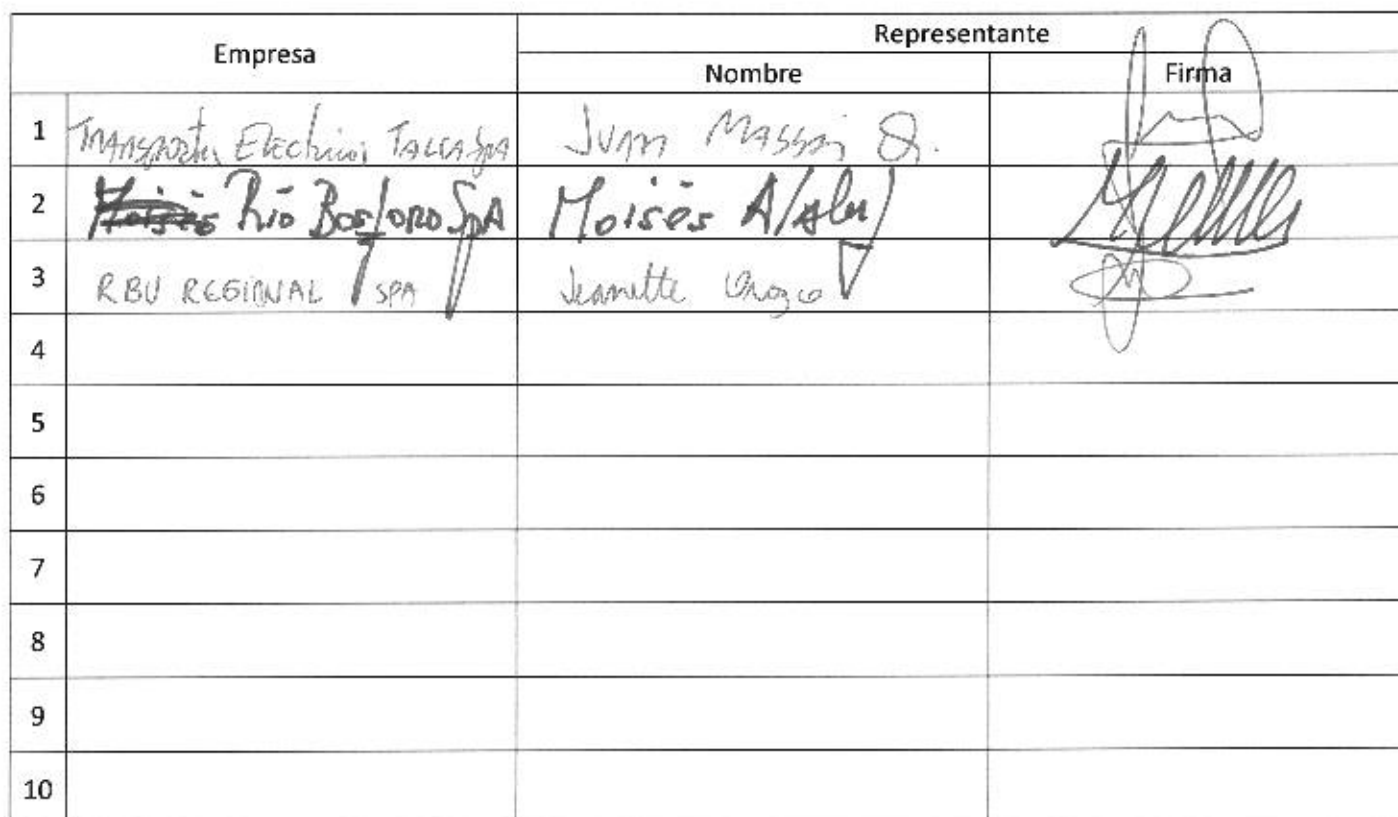 Empresa
Representante
Nombre
Firma
1 Transportes Electricos Talca SpA Juan Massai O.
2 Moisés Río Bosforo SpA Moisés
3 RBU REGIONAL SPA Jeanette Orozco
4
5
6
7
8
9
10